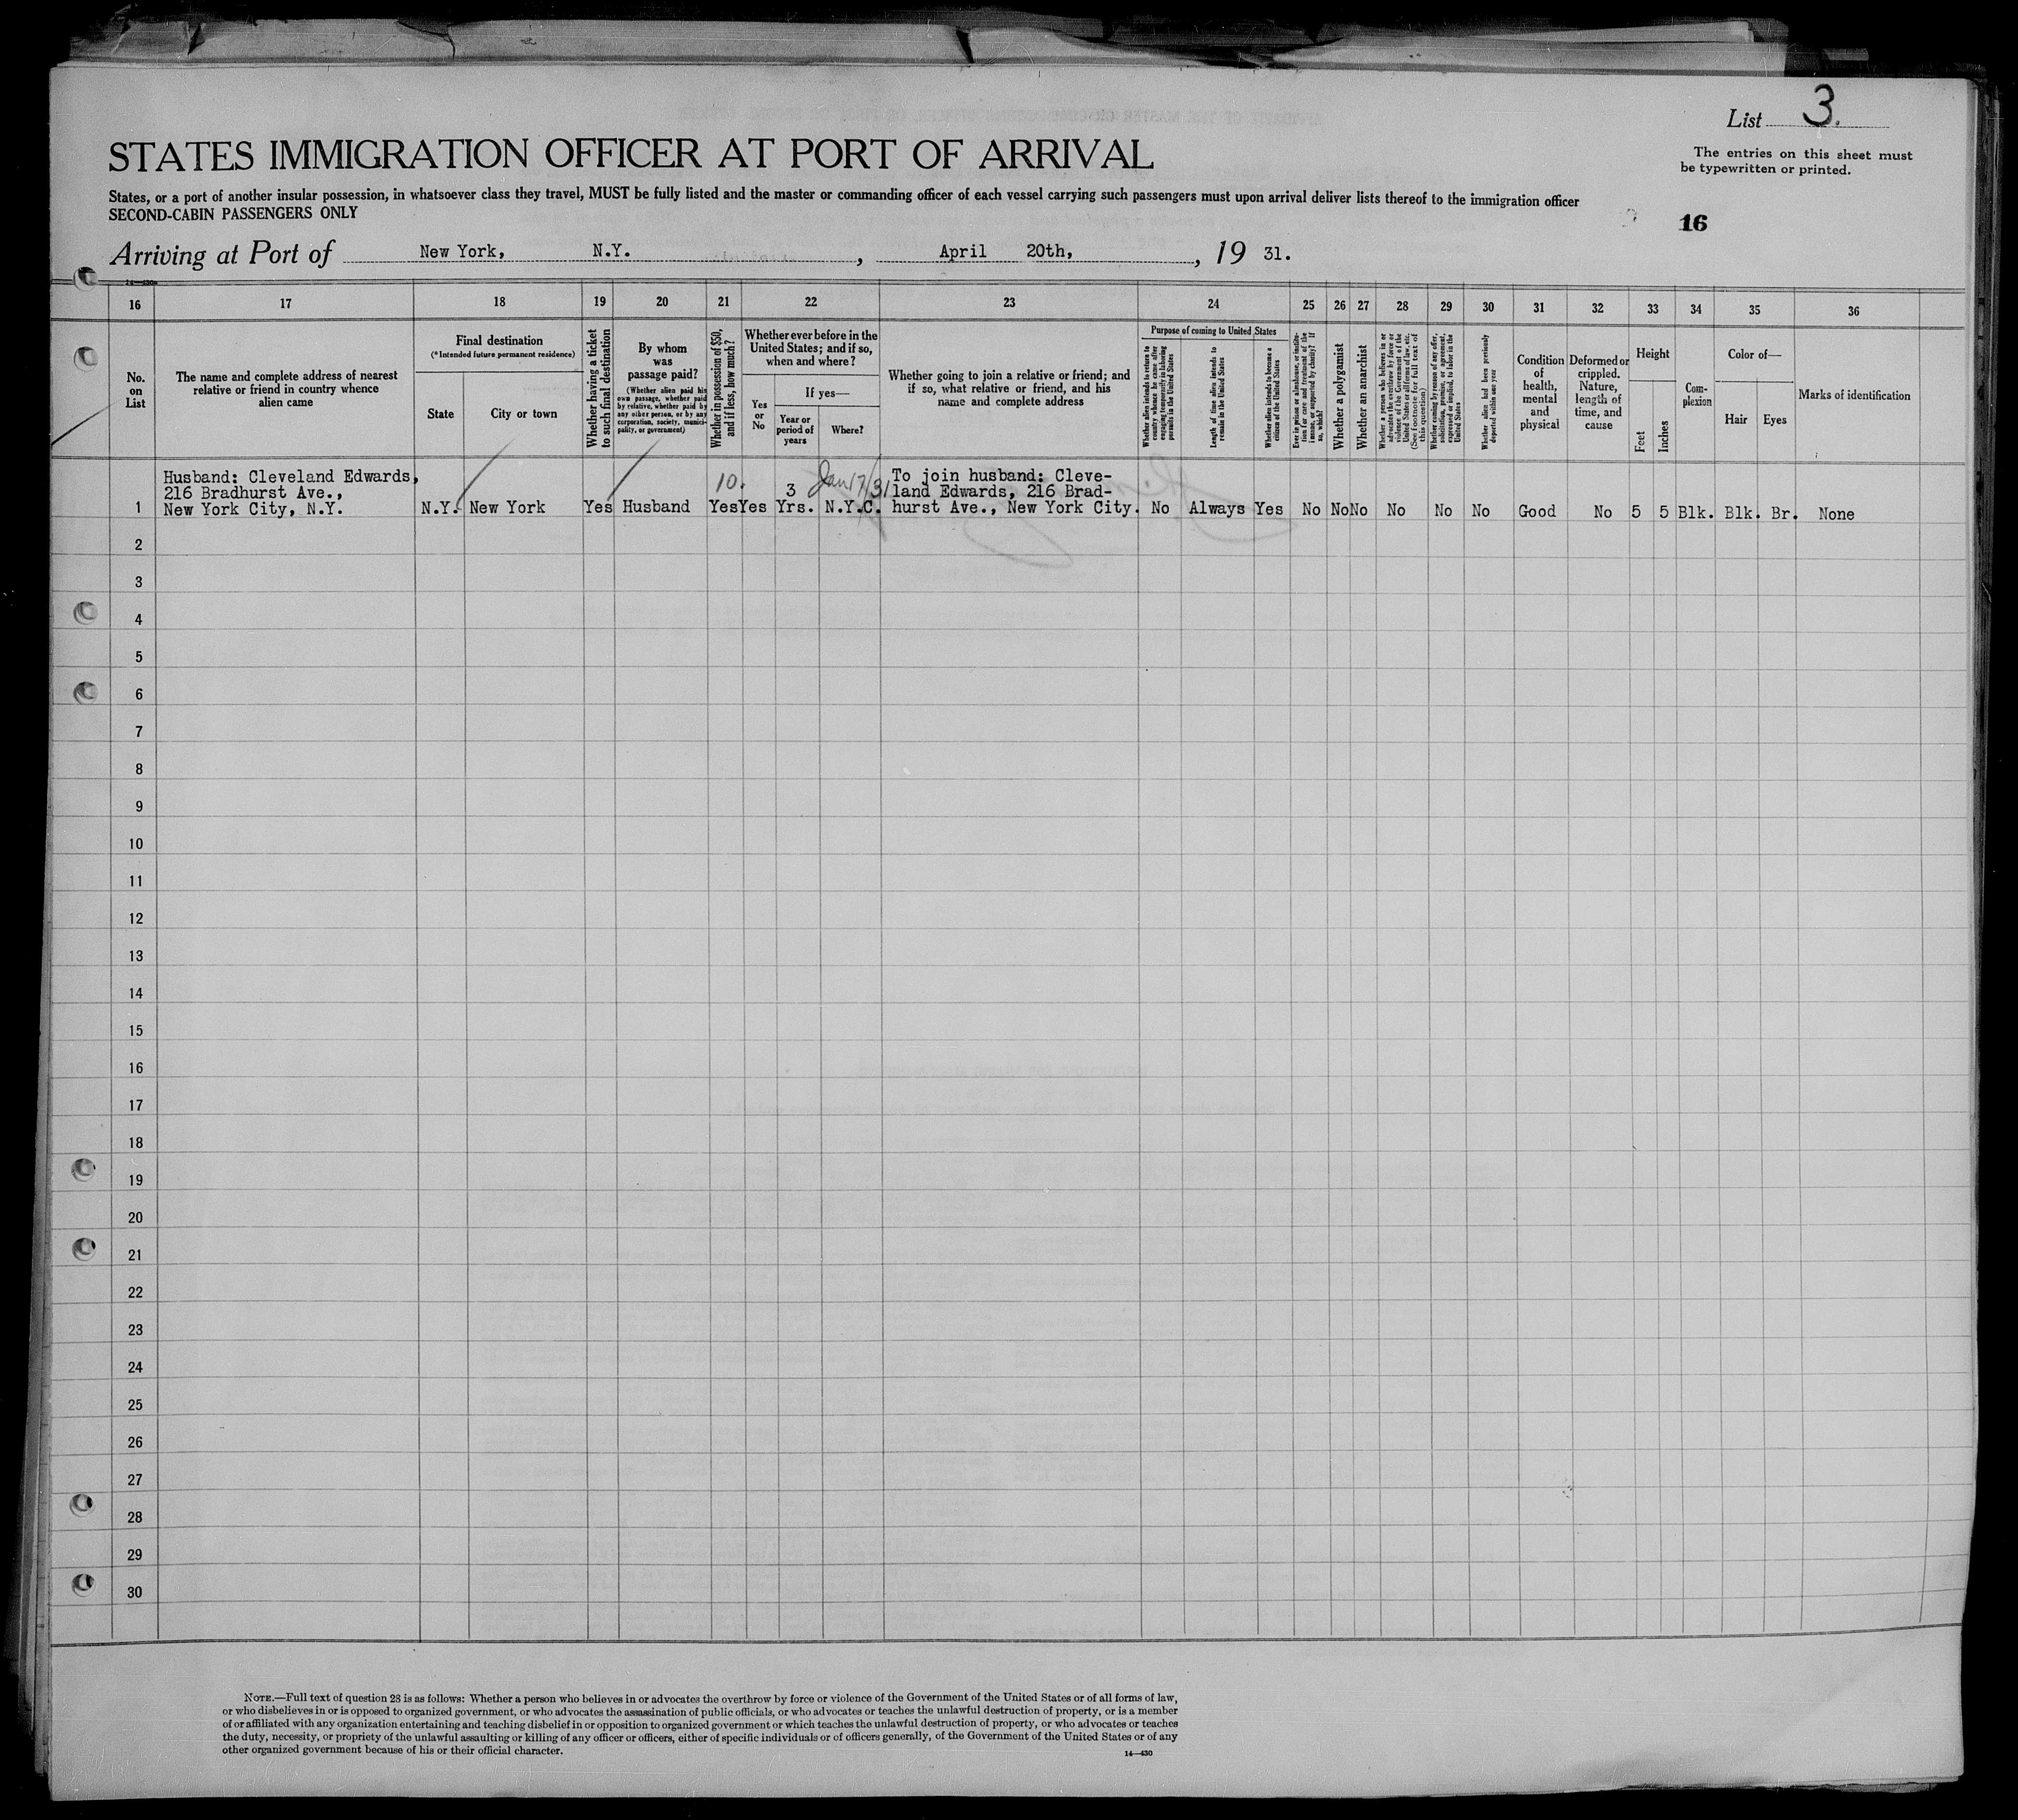 List 3.
The entries on this sheet must
be typewritten or printed.
STATES IMMIGRATION OFFICER AT PORT OF ARRIVAL
States, or a port of another insular possession, in whatsoever class they travel, MUST be fully listed and the master or commanding officer of each vessel carrying such passengers must upon arrival deliver lists thereof to the immigration officer
SECOND-CABIN PASSENGERS ONLY
16
Arriving at Port of New York, N.Y. , April 20th, , 19 31.
14—430
16 17 18 19 20 21 22 23 24 25 26 27 28 29 30 31 32 33 34 35 36
No.
on
List
The name and complete address of nearest
relative or friend in country whence
alien came
Final destination
(*Intended future permanent residence)
State
City or town
Whether having a ticket
to such final destination
By whom
was
passage paid?
(Whether alien paid his
own passage, whether paid
by relative, whether paid by
any other person, or by any
corporation, society, munici-
pality, or government)
Whether in possession of $50,
and if less, how much?
Whether ever before in the
United States; and if so,
when and where?
Yes
or
No
If yes—
Year or
period of
years
Where?
Whether going to join a relative or friend; and
if so, what relative or friend, and his
name and complete address
Purpose of coming to United States
Whether alien intends to return to
country whence he came after
engaging temporarily in laboring
pursuits in the United States
Length of time alien intends to
remain in the United States
Whether alien intends to become a
citizen of the United States
Ever in prison or almshouse, or institu-
tion for care and treatment of the
insane, or supported by charity? If
so, which?
Whether a polygamist
Whether an anarchist
Whether a person who believes in or
advocates the overthrow by force or
violence of the Government of the
United States or all forms of law, etc.
(See footnote for full text of
this question)
Whether coming by reason of any offer,
solicitation, promise, or agreement,
expressed or implied, to labor in the
United States
Whether alien had been previously
deported within one year
Condition
of
health,
mental
and
physical
Deformed or
crippled.
Nature,
length of
time, and
cause
Height
Feet
Inches
Com-
plexion
Color of—
Hair
Eyes
Marks of identification
Husband: Cleveland Edwards,
216 Bradhurst Ave.,
10. 3 Jan 17/31
To join husband: Cleve-
land Edwards, 216 Brad-
1 New York City, N.Y. N.Y. New York Yes Husband Yes Yes Yrs. N.Y.C. hurst Ave., New York City. No Always Yes No No No No No No Good No 5 5 Blk. Blk. Br. None
2
3
4
5
6
7
8
9
10
11
12
13
14
15
16
17
18
19
20
21
22
23
24
25
26
27
28
29
30
NOTE.—Full text of question 28 is as follows: Whether a person who believes in or advocates the overthrow by force or violence of the Government of the United States or of all forms of law,
or who disbelieves in or is opposed to organized government, or who advocates the assassination of public officials, or who advocates or teaches the unlawful destruction of property, or is a member
of or affiliated with any organization entertaining and teaching disbelief in or opposition to organized government or which teaches the unlawful destruction of property, or who advocates or teaches
the duty, necessity, or propriety of the unlawful assaulting or killing of any officer or officers, either of specific individuals or of officers generally, of the Government of the United States or of any
other organized government because of his or their official character.
14—430